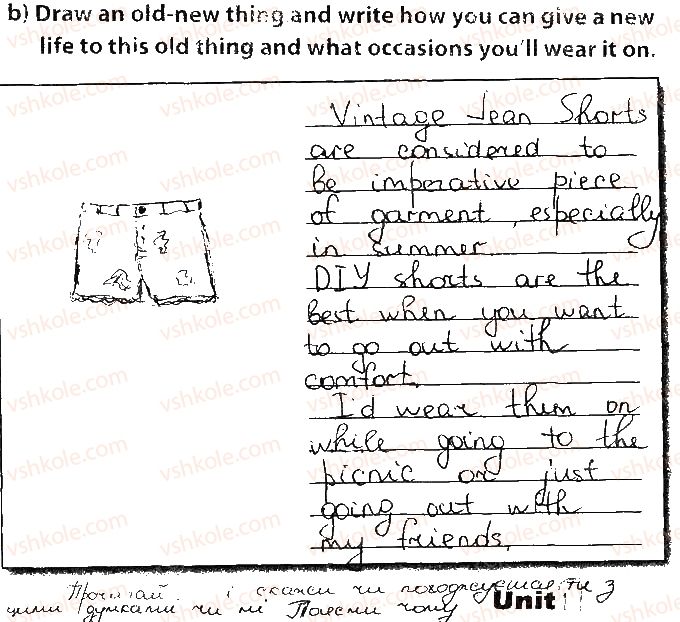 b) Draw an old-new thing and write how you can give a new
life to this old thing and what occasions you'll wear it on.
Vintage Jean Shorts
are considered to
be imperative piece
of garment, especially
in summer.
DIY shorts are the
best when you want
to go out with
comfort.
I'd wear them on
while going to the
picnic or just
going out with
my friends.
Прочитай і скажи чи погоджуєшся ти з
цими думками чи ні Поясни чому
Unit
vshkole.com